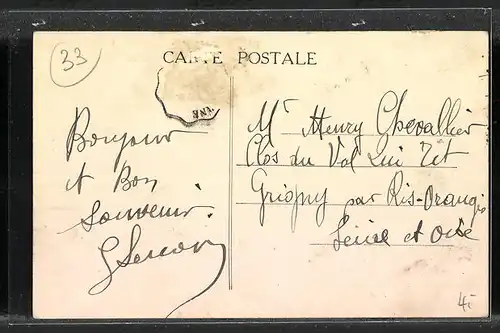 33
CARTE POSTALE
Bonjour
et Bon
souvenir.
Mr Henry Chevallier
Clos du Val Qui Rit
Grigny par Ris-Orangis
Seine et Oise